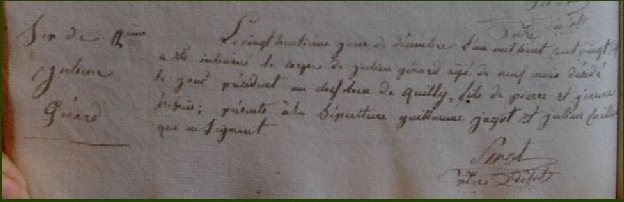 julien
Gérard
Le vingt huitieme jour de décembre l'an mil huit cent vingt
a été inhumé le corps de julien gérard agé de neuf mois décédé
le jour précédent au chef lieu de Quilly, fils de pierre et jeanne
présents à la sépulture guillaume jagot et julien
qui ne signent